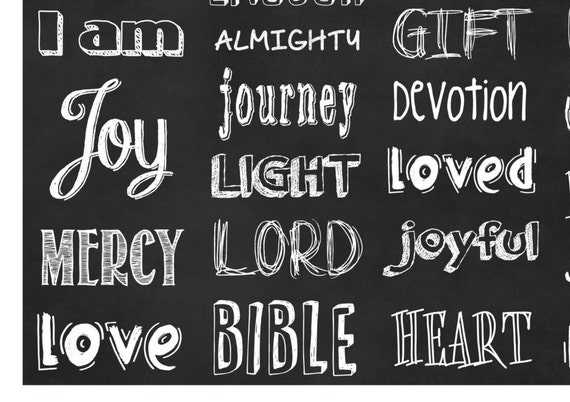 I am
Joy
MERCY
Love
ALMIGHTY
journey
LIGHT
LORD
BIBLE
GIFT
DEVOTION
Loved
joyful
HEART